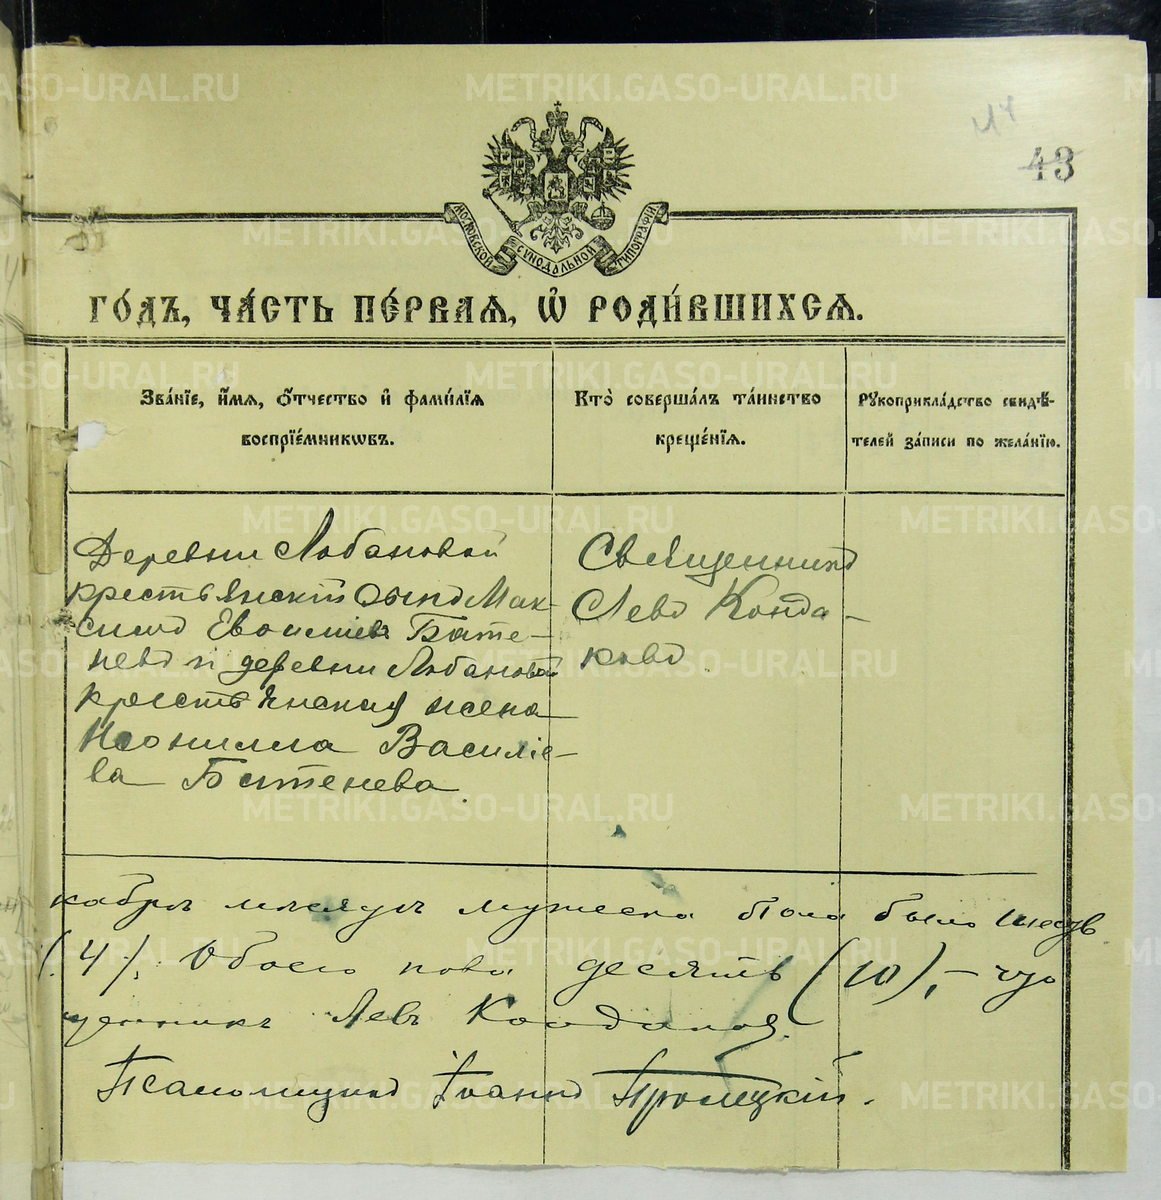 44
43
МОСКОВСКОЙ СѴНОДАЛЬНОЙ ТИПОГРАФІИ
ГО́ДЪ, ЧА́СТЬ ПЕ́РВАѦ, Ѽ РОДИ́ВШИХСѦ.
Зва́нїе, и҆́мѧ, ѻ҆́тчество и҆ фами́лїѧ
воспрїе́мникѡвъ.
Кто̀ соверша́лъ та́инство
креще́нїѧ.
Рꙋкоприкла́дство свидѣ́-
телей за́писи по жела́нїю.
Деревни Лобановой
крестьянскій сынъ Мак-
симъ Евоимевъ Бате-
невъ и деревни Лобановой
крестьянская жена
Неонилла Василіе-
ва Батенева.
Священникъ
Левъ Конда-
ковъ.
кабрѣ мѣсяцѣ мужеска пола было шесть
(4). Обоего пола десять (10), –
щенникъ Левъ Кондаковъ.
Псаломщикъ Іоаннъ Тролецкій.
METRIKI.GASO-URAL.RU